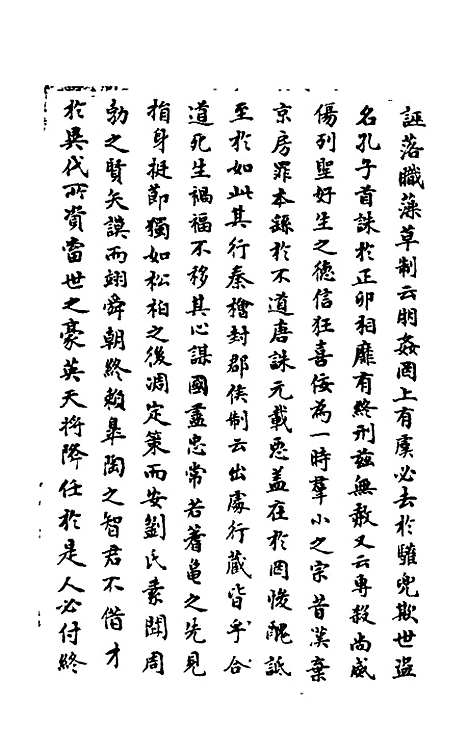 誣落職藻草制云朋姦罔上有虞必去於驩兜欺世盜
名孔子首誅於正卯相靡有終刑茲無赦又云專殺尚威
傷列聖好生之德信狂喜佞為一時羣小之宗昔漢棄
京房罪本繇於不道唐誅元載惡盖在於罔悛醜詆
至於如此其行秦檜封郡侯制云出處行藏皆乎合
道死生禍福不移其心謀國盡忠常若蓍龜之先見
指身挺節獨如松柏之後凋定策而安劉氏素聞周
勃之賢矢謨而翊舜朝終賴臯陶之智君不借才
於異代所資當世之豪英天將降任於是人必付終